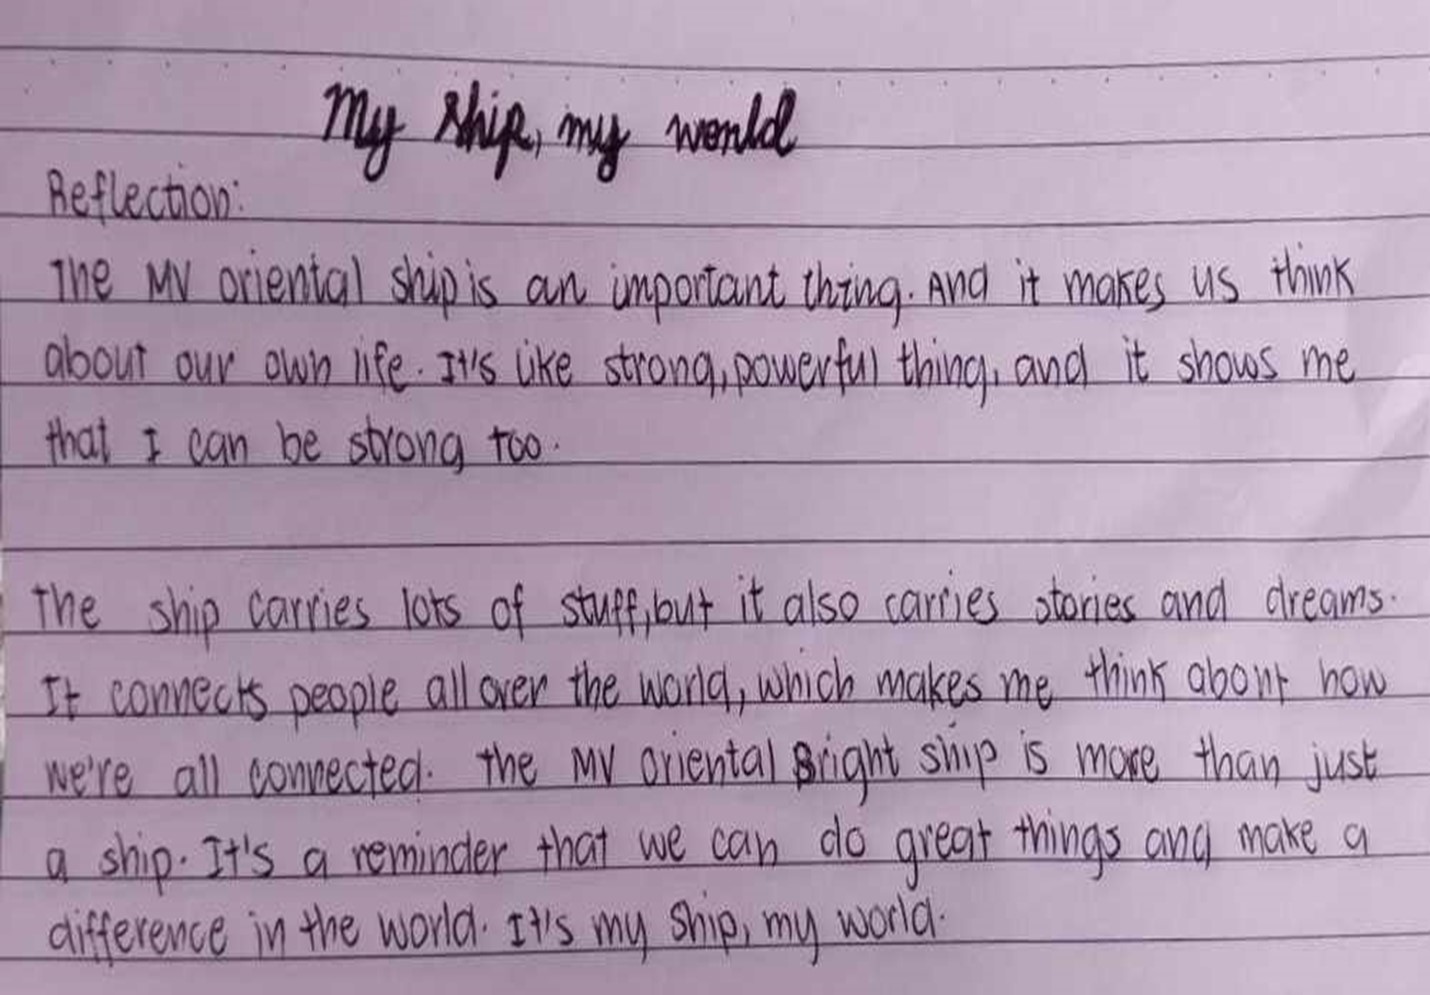 My ship, my world
Reflection:
The MV oriental ship is an important thing. And it makes us think
about our own life. It's like strong, powerful thing, and it shows me
that I can be strong too.
The ship carries lots of stuff, but it also carries stories and dreams.
It connects people all over the world, which makes me think about how
we're all connected. The MV oriental Bright ship is more than just
a ship. It's a reminder that we can do great things and make a
difference in the world. It's my ship, my world.